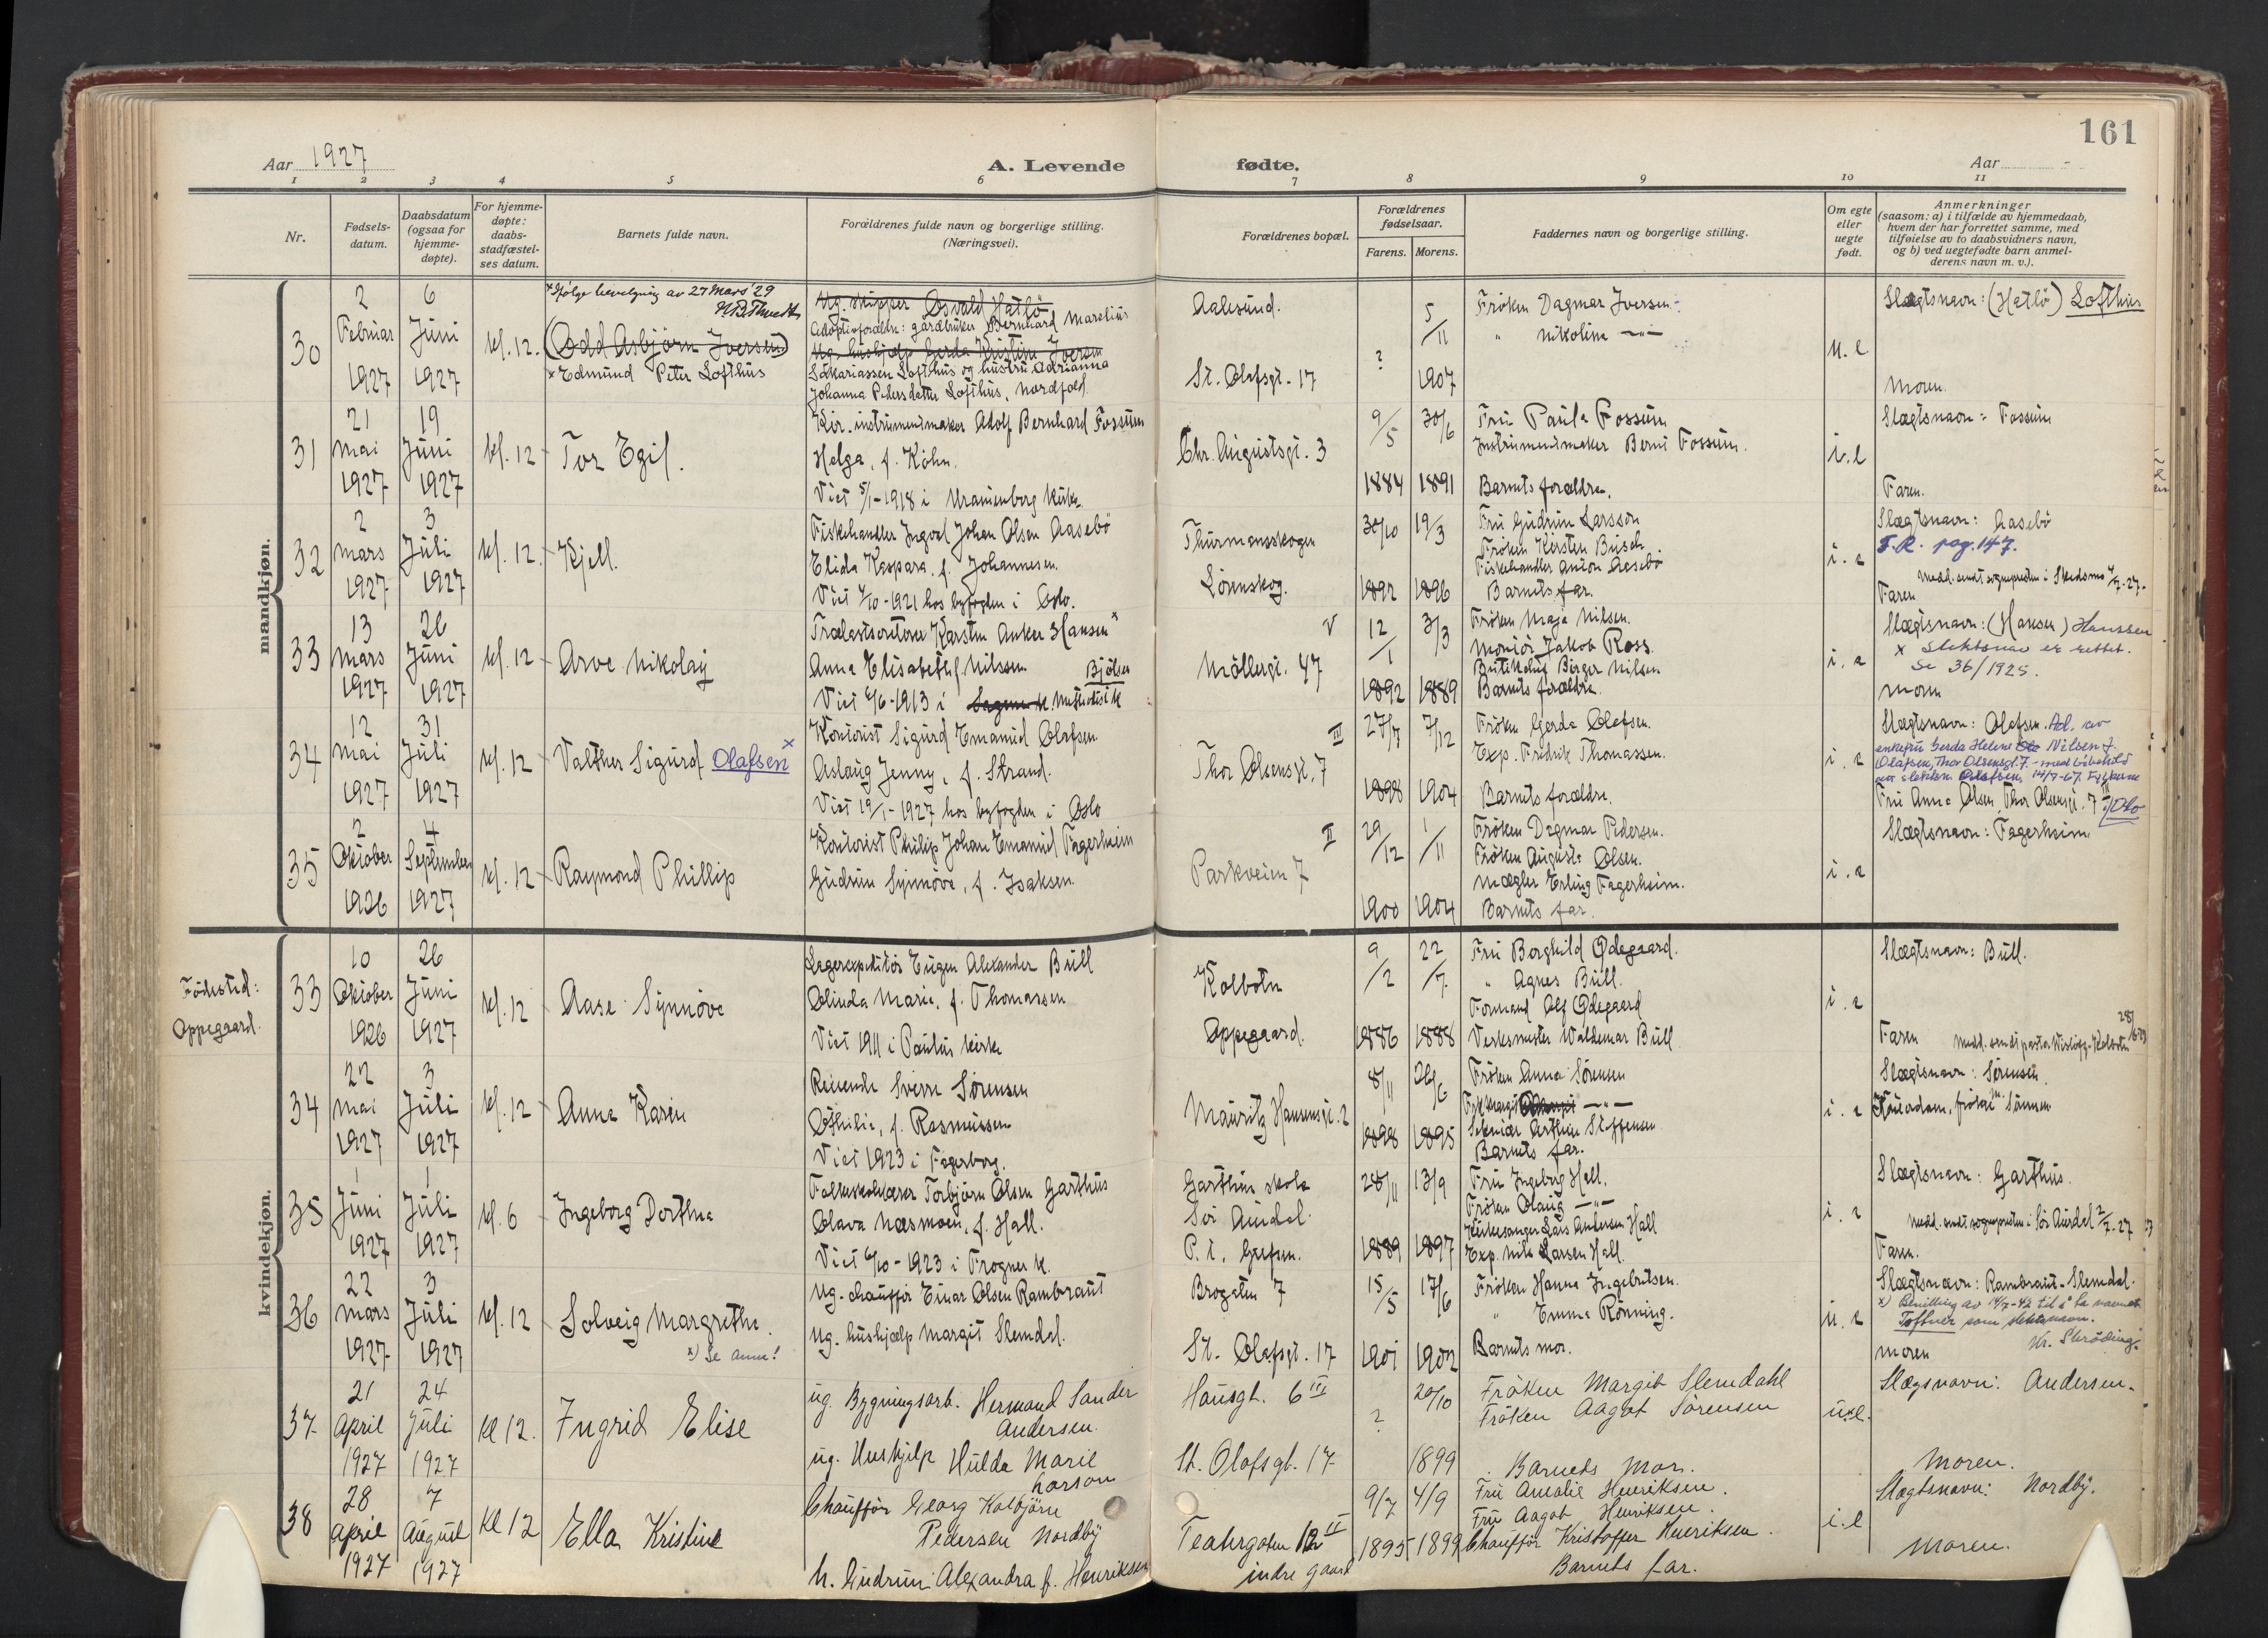 161
Aar 1927
A. Levende fødte.
Aar
1 2 3 4 5 6 7 8 9 10 11
Nr.
Fødsels-
datum.
Daabsdatum
(ogsaa for
hjemme-
døpte).
For hjemme-
døpte:
daabs-
stadfæstel-
ses datum.
Barnets fulde navn.
Forældrenes fulde navn og borgerlige stilling.
(Næringsvei).
Forældrenes bopæl.
Forældrenes
fødselsaar.
Farens. Morens.
Faddernes navn og borgerlige stilling.
Om egte
eller
uegte
født.
Anmerkninger
(saasom: a) i tilfælde av hjemmedaab,
hvem der har forrettet samme, med
tilføielse av to daabsvidners navn,
og b) ved uegtefødte barn anmel-
derens navn m. v.).
mandkjøn.
30
2
Februar
1927
6
Juni
1927
kl. 12.
x Ifølge bevilgning av 27 Mars '29
(Odd Asbjørn Iversen)
x Edmund Peter Lofthus
Ug. skipper Osvald Hatlö
Adoptivforældre: gårdbruker Bernhard Marelius
Ug. hushjælp Gerda Kristine Iversen
Sakariassen Lofthus og hustru Adrianna
Johanna Pedersdatter Lofthus, Nordfold
Aalesund.
St. Olafsgt. 17
?
5/11
1907
Fröken Dagmar Iversen.
" Nikoline —"—
u. e
Slægtsnavn: (Hatlö) Lofthus
Moren.
31
21
Mai
1927
19
Juni
1927
kl. 12
Tor Egil.
Kir. instrumentmaker Adolf Bernhard Fossum
Helga, f. Köhn.
Viet 5/1-1918 i Uranienborg kirke
Chr. Augustsgt. 3
9/5
1884
30/6
1891
Fru Paula Fossum
Instrumentmaker Bernt Fossum.
Barnets forældre.
i. e
Slægtsnavn: Fossum
Faren.
32
2
Mars
1927
3
Juli
1927
kl. 12.
Kjell.
Fiskehandler Ingval Johan Olsen Aasebö
Elida Kaspara, f. Johannesen.
1921 hos byfogden i Oslo.
Thurmannsskogen
Lörenskog.
30/10
1892
19/3
1896
Fru Gudrun Larsson
Fröken Kirsten Busch
Fiskehandler Anton Aasebö
Barnets far.
i. e
Slægtsnavn: Aasebö
F.R. pag. 147.
Medd. sendt sognepresten i Skedsmo 4/7-27.
Faren
33
13
Mars
1927
26
Juni
1927
kl. 12
Arve Nikolay
Trælastsorterer Karsten Anker Hansen x
Anna Elisabeth f. Nilssen
Bjölsen
Viet 6/6-1913 i Metodistk
V
Möllergt. 47
12/1
1892
3/3
1889
Fröken Maja Nilsen.
Montör Jakob Ross.
Birger Nilsen
Barnets forældre.
i. e
Slægtsnavn: (Hansen) Hanssen
x Slektsnavn er rettet.
Se 36/1925.
Moren
34
12
Mai
1927
31
Juli
1927
kl. 12
Valther Sigurd Olafsen x
Kontorist Sigurd Emanuel Olafsen
Aslaug Jenny, f. Strand.
Viet 19/1-1927 hos byfogden i Oslo
III
Thor Olsensgt. 7
27/7
1898
7/12
1904
Fröken Gerda Olafsen.
Exp. Fredrik Thomassen.
Barnets forældre.
i. e
Slægtsnavn: Olafsen. Ad. av
enkefru Gerda Helene Nilsen f.
Olafsen, Thor Olsensgt. 7 - med bibehold
av slektsn. Olafsen. 14/7-67.
Fru Anna Olsen Thor Olsensgt. 7 III Oslo
35
2
Oktober
1926
4
September
1927
kl. 12
Raymond Phillip
Kontorist Philip Johan Emanuel Fagerheim
Gudrun Synnöve, f. Isaksen.
II
Parkveien 7
29/12
1900
1/11
1904
Fröken Dagmar Pedersen.
Fröken Augusta Olsen.
Mægler Erling Fagerheim.
Barnets far.
i. e
Slægtsnavn: Fagerheim
kvindekjøn.
Födested:
Oppegaard.
33
10
Oktober
1926
26
Juni
1927
kl. 12
Aase Synnöve
Lagerexpeditör Eugen Alexander Bull
Olinda Marie, f. Thomassen
Viet 1911 i Paulus kirke
Kolbotn
Oppegaard.
9/2
1886
22/7
1888
Fru Borghild Ødegaard.
" Agnes Bull.
Formand Alf Ødegaard
Verksmester Waldemar Bull
i. e
Slægtsnavn: Bull.
Faren
34
22
Mai
1927
3
Juli
1927
kl. 12
Anna Karin
Reisende Sverre Sörensen
Othilie, f. Rasmussen
Viet 1923 i Fagerborg.
Mauritz Hansensgt. 2
8/11
1898
26/6
1895
Fröken Anna Sörensen
Frk Margit —"—
Arthur Steffensen
Barnets far.
i. e
Slægtsnavn: Sörensen.
35
1
Juni
1927
1
Juli
1927
kl. 6
Ingeborg Dorthea
Folkeskolelærer Torbjörn Olsen Garthus
Olava Næsmoen, f. Hall.
Viet 6/10-1923 i Frogner k.
Garthus skole
Sör Aurdal.
P.t. Grefsen.
28/11
1889
13/9
1897
Fru Ingeborg Hall.
Fröken Olaug —"—
Kirkesanger Lars Andersen Hall
Exp. Nils Larsen Hall
i. e
Slægtsnavn: Garthus.
Medd. sendt sognepresten i Sör Aurdal 2/7-27
Faren.
36
22
Mars
1927
3
Juli
1927
kl. 12
Solveig Margrethe.
x) Se anm!
Ug. chauffør Einar Olsen Rambraut
Ug. hushjælp Margit Slemdal.
Brogaten 7
St. Olafsgt. 17
15/5
1901
17/6
1902
Fröken Hanna Ingebritsen.
" Emma Rönning.
Barnets mor.
u. e
Slægtsnavn: Rambraut - Slemdal.
x) Bevilling av 14/7-42 til å ta navnet
Toftner som slektsnavn.
Moren
37
21
April
1927
24
Juli
1927
kl 12.
Ingrid Elise
ug. Bygningsarb. Hermand Sander
Andersen.
ug. Hushjelp Hulda Marie
Larson
Hausgt. 6 III
St. Olafsgt. 17
?
20/10
1899
Fröken Margit Slemdahl
Fröken Aagot Sörensen
Barnets Mor.
u.e.
Slægsnavn: Andersen.
Moren.
38
28
April
1927
7
August
1927
Kl 12
Ella Kristine
Chauffør Georg Kolbjörn
Pedersen Nordby
h. Gudrun Alexandra f. Henriksen
Teatergaten 12 II
indre gaard
9/7
1895
4/9
1899
Fru Amalie Henriksen.
Fru Aagot Henriksen.
Chauffør Kristoffer Henriksen.
Barnets far.
i.e
Slægtsnavn: Nordby.
Moren.